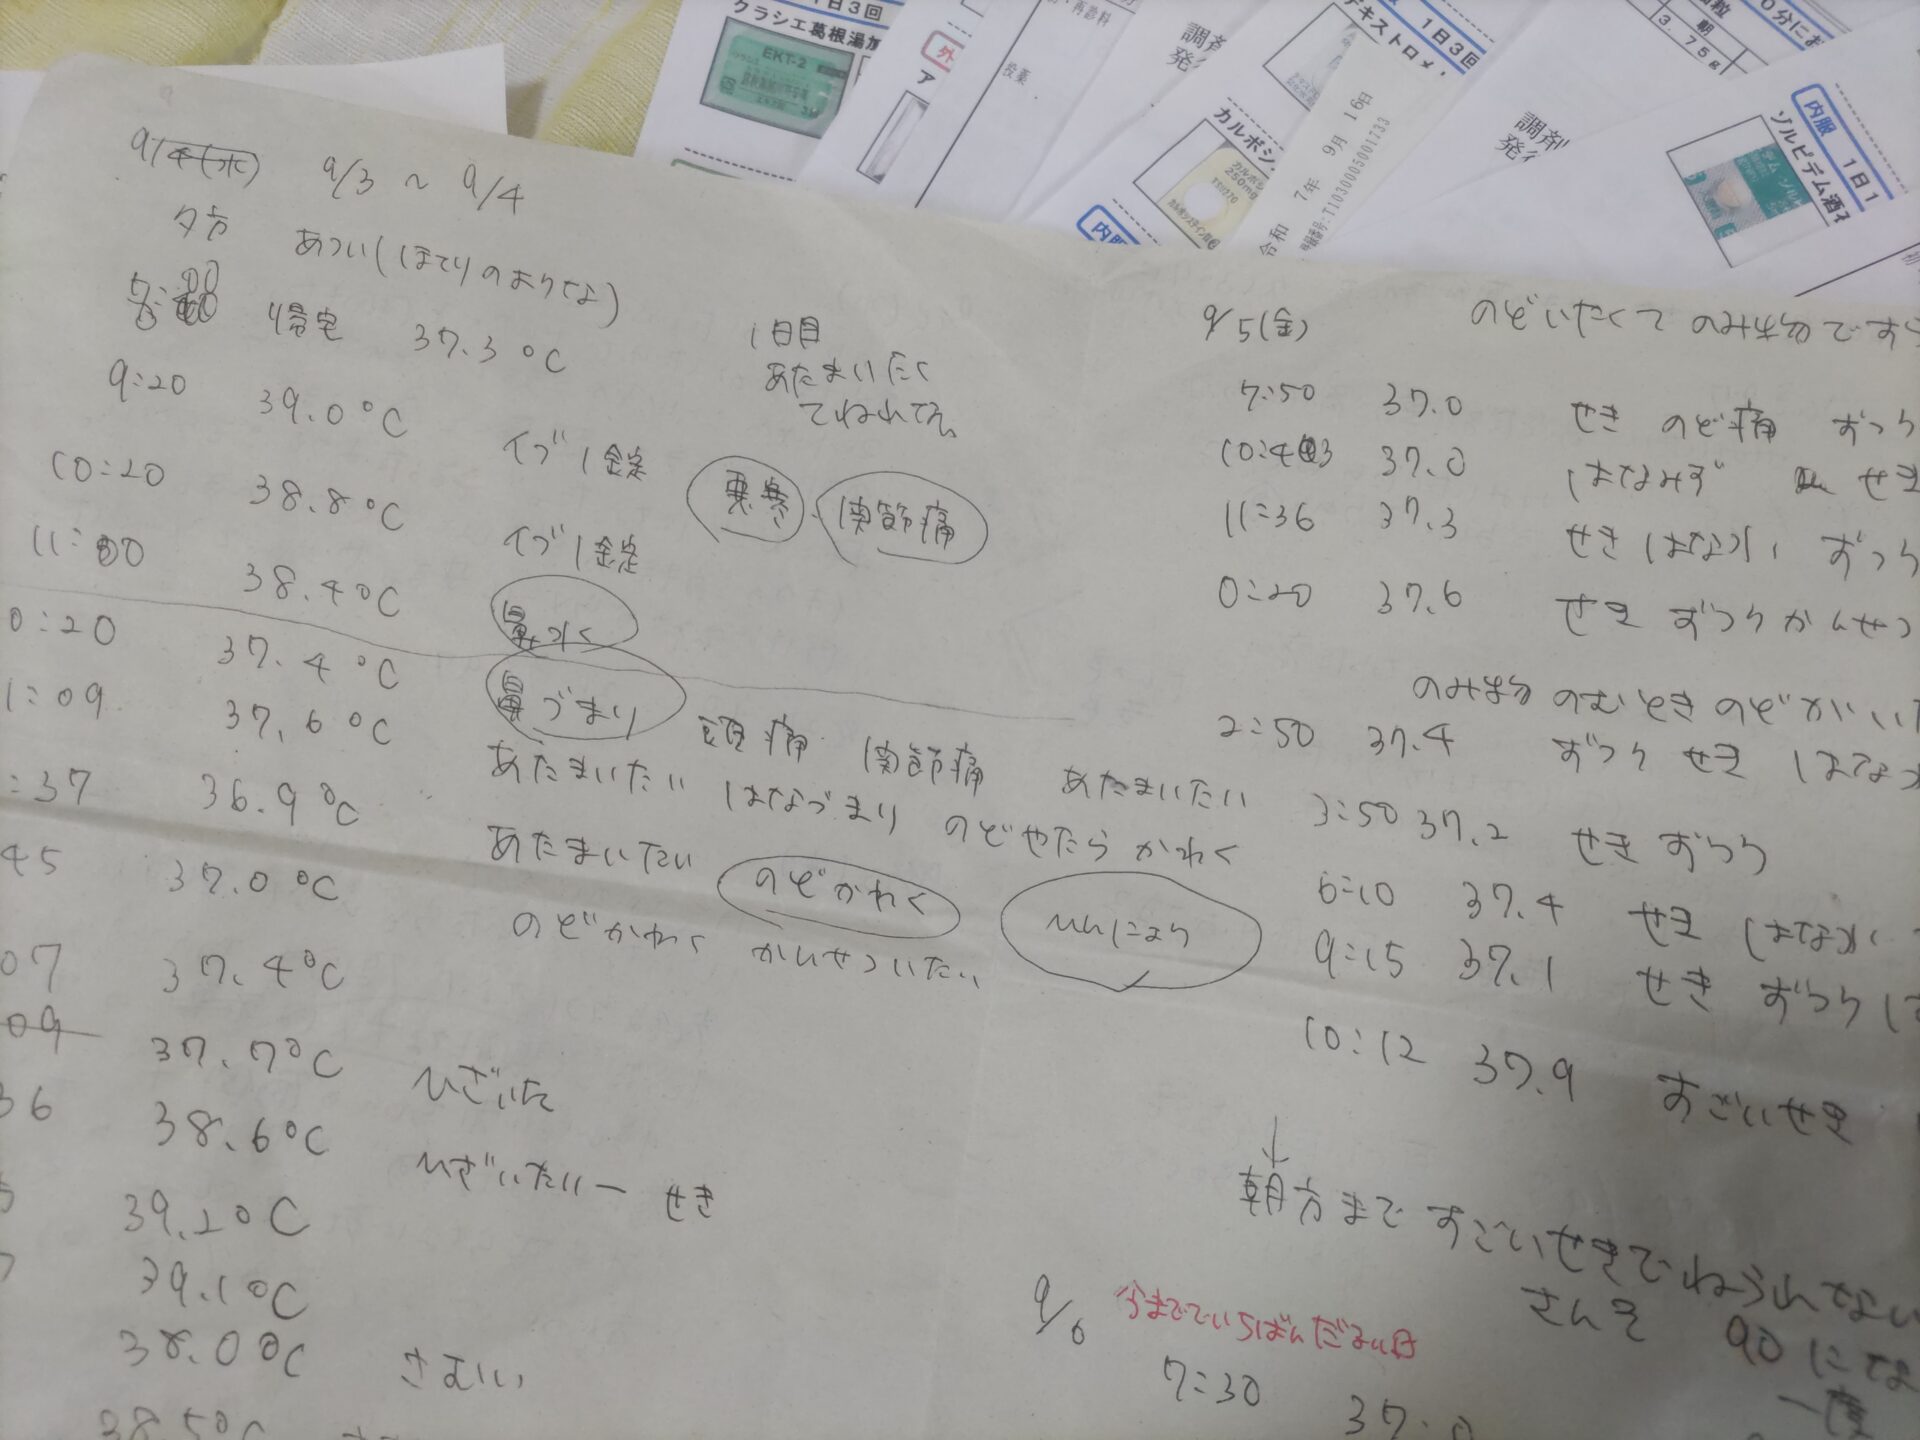 1日3回
クラシエ葛根湯加
EKT-2
再診料
投薬
外
ア
調剤
デキストロメ
1日3回
カルボシ
カルボシ
250mg
内服
令和 7年 9月 16日
登録番号:T1030005001733
調剤
3.75g
朝
0分にお
内服 1日1
ゾルピデム酒石
9/4(水) 9/3 ~ 9/4
夕方 あつい(ほてりのような)
帰宅 37.3℃
9:20 39.0℃ イブ1錠
10:20 38.8℃ イブ1錠
11:00 38.4℃ 鼻水
1日目
あたまいたく
てねれてえ、
悪寒 関節痛
0:20 37.4℃ 鼻づまり 頭痛 関節痛 あたまいたい
1:09 37.6℃ あたまいたい はなづまり のどやたらかわく
:37 36.9℃ あたまいたい のどかわく ひんにょう
45 37.0℃ のどかわく かんせついたい
07 37.4℃
09 37.7℃ ひざいた
36 38.6℃ ひざいたいー せき
39.2℃
39.1℃
38.0℃ さむい
38.5℃
9/5(金) のどいたくて のみ物ですら
7:50 37.0 せき のど痛 ずつう
10:43 37.0 はなみず せき
11:36 37.3 せき はな水 ずつう
0:20 37.6 せき ずつう かんせつ
のみ物 のむとき のどがいた
2:50 37.4 ずつう せき はなみ
3:50 37.2 せき ずつう
6:10 37.4 せき はな水
9:15 37.1 せき ずつう は
10:12 37.9 すごいせき
↓
朝方まで すごいせきでねられない
さんそ 90にな
9/6 今まででいちばんだるい日
7:30 37.0